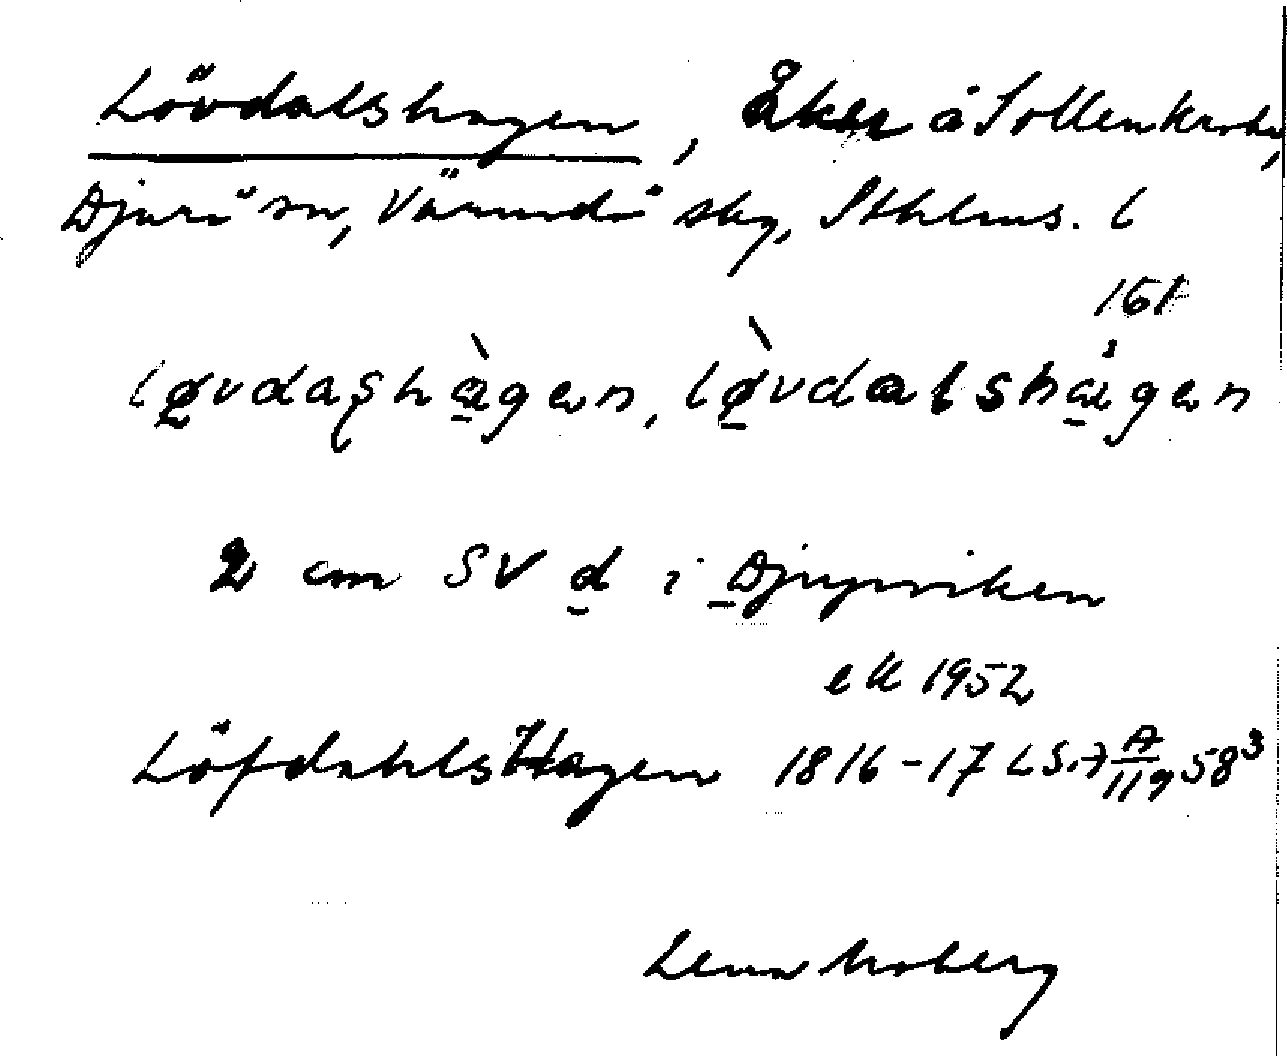 Lövdalshagen, Åker å Sollenkroka,
Djurö sn, Värmdö skg, Sthlms. l
161
løvdaʂhàgen, lø̀vdalshágen
2 cm SV d i Djupviken
ek 1952
LöfdahlsHagen 1816-17 LSA A/119 58³
Lena Moberg